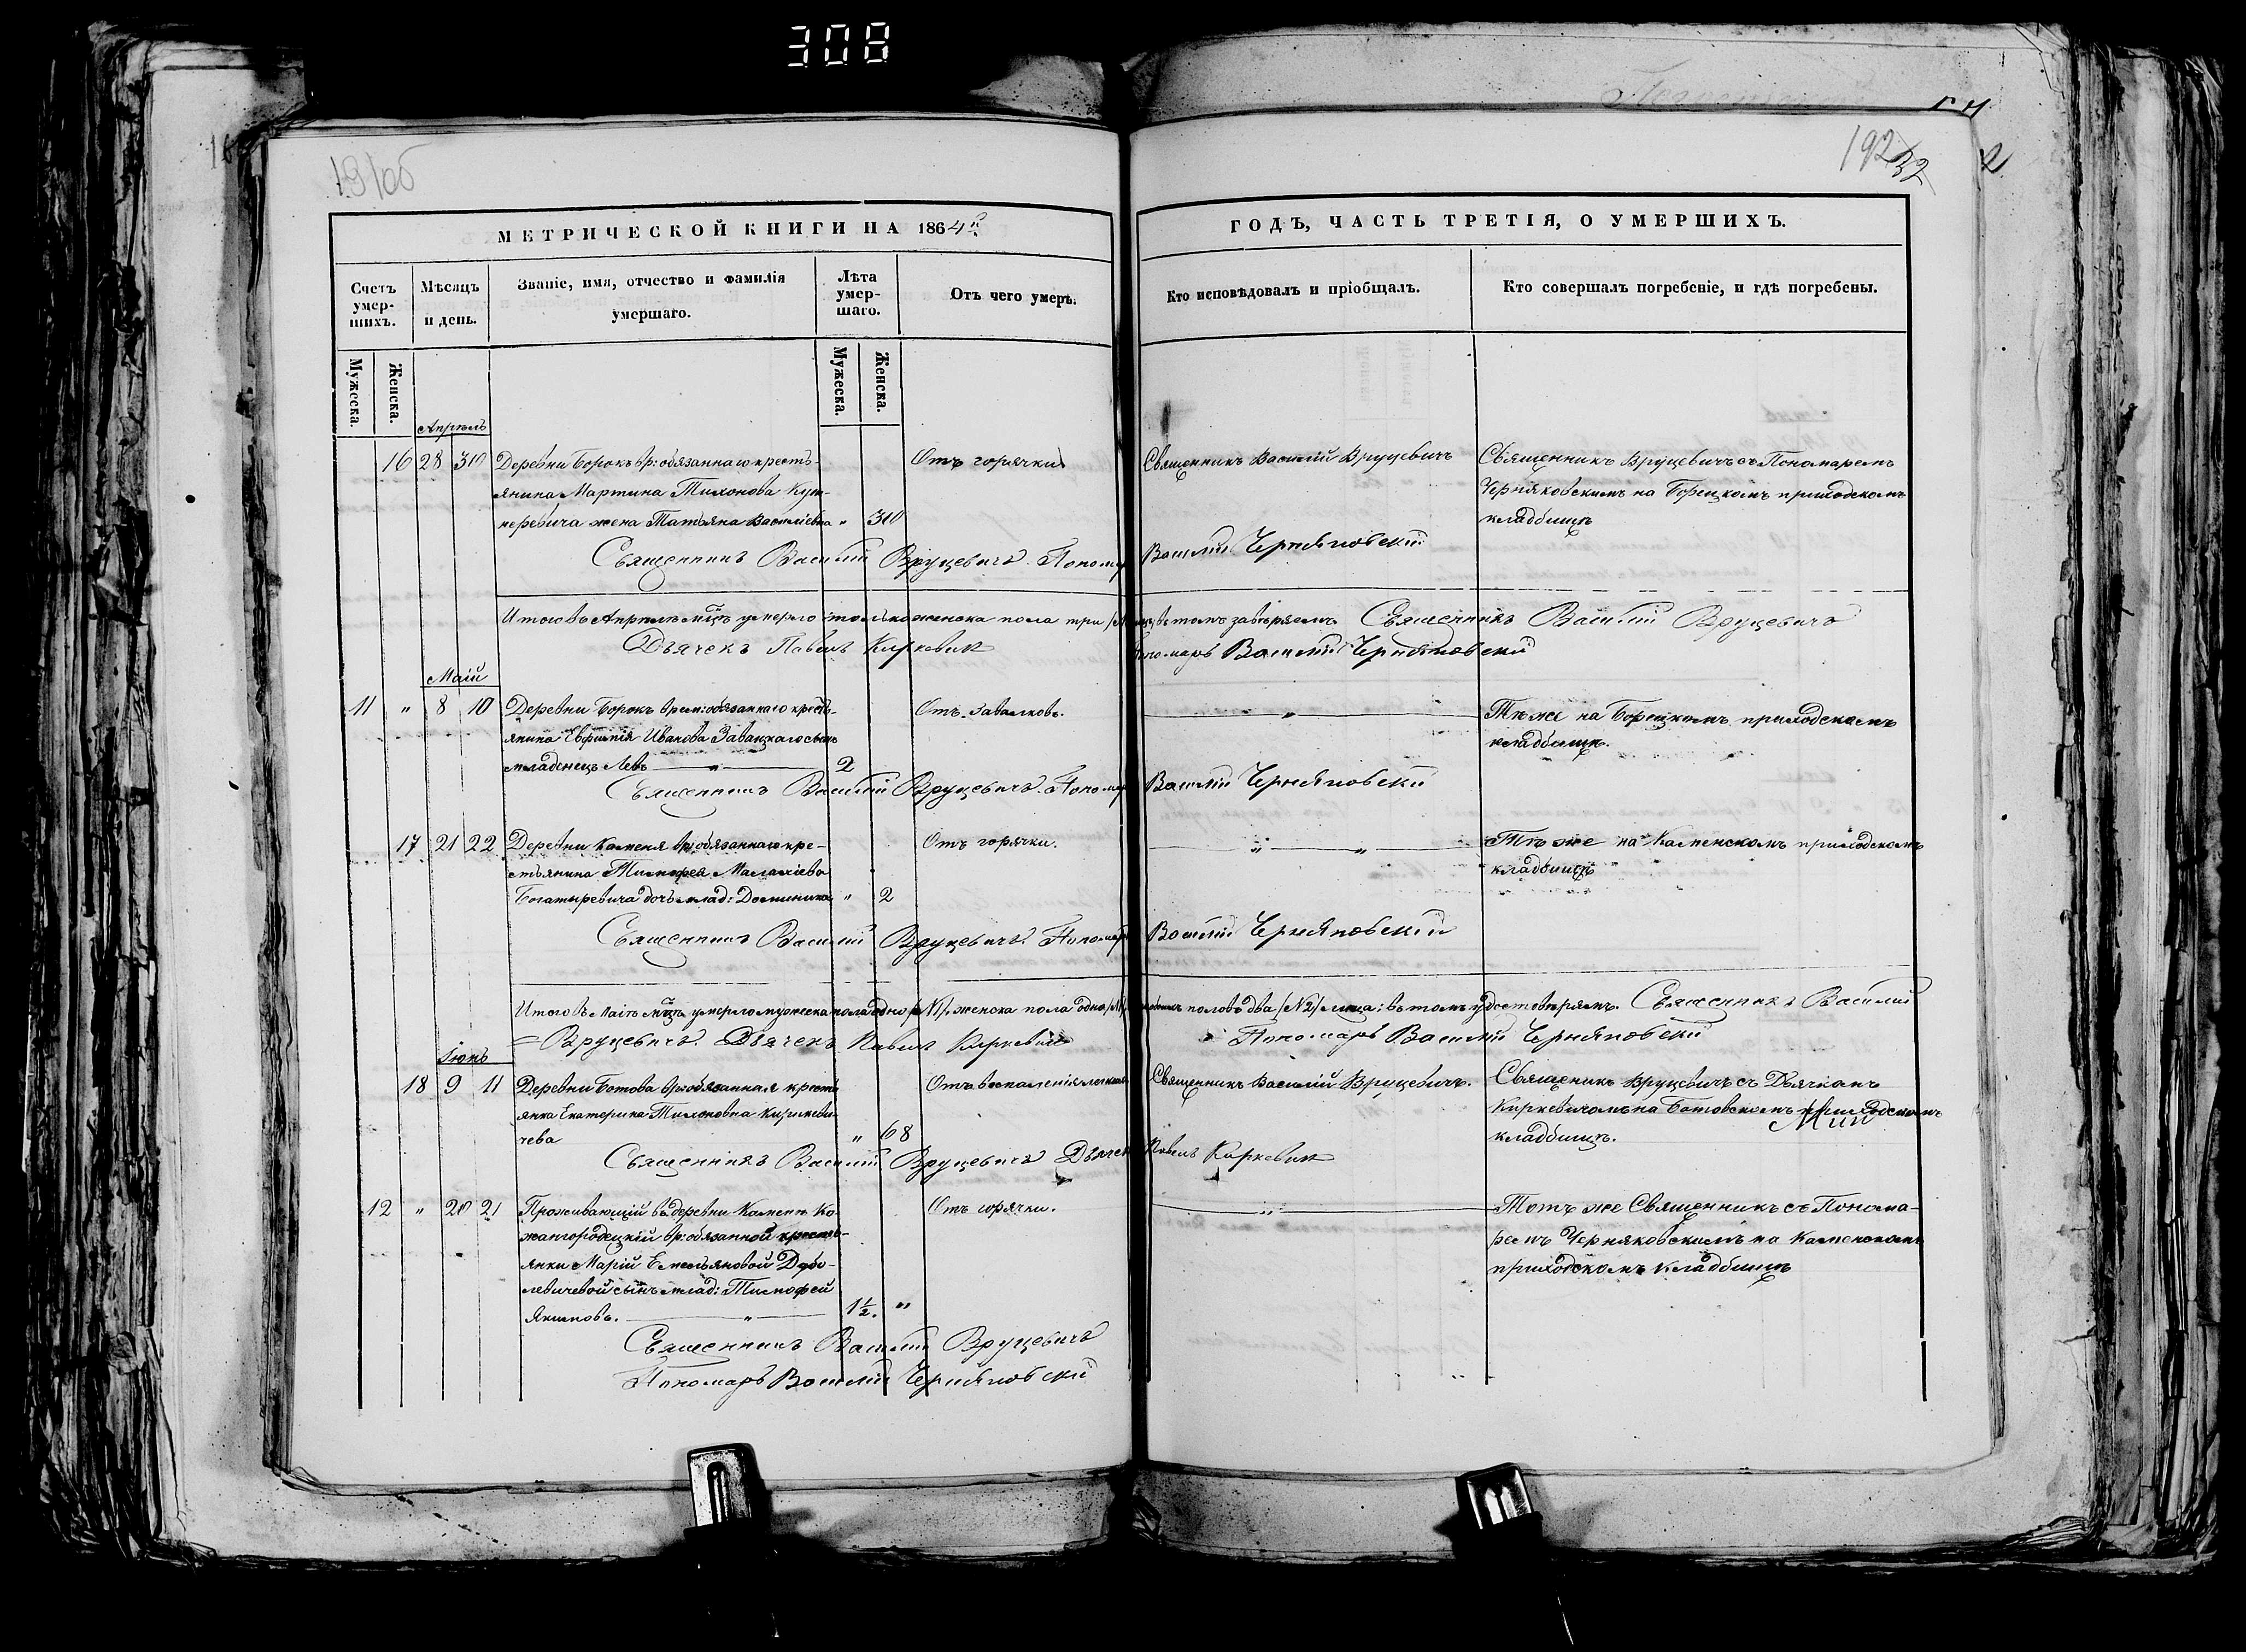 308
191об
192
32
МЕТРИЧЕСКОЙ КНИГИ НА 1864й
ГОДЪ, ЧАСТЬ ТРЕТІЯ, О УМЕРШИХЪ.
Счетъ умер-
шихъ.
Мѣсяцъ
и день.
Званіе, имя, отчество и фамилія
умершаго.
Лѣта
умер-
шаго.
Отъ чего умеръ.
Кто исповѣдовалъ и пріобщалъ.
Кто совершалъ погребеніе, и гдѣ погребены.
Мужеска.
Женска.
Мужеска.
Женска.
Апрѣль
16 28 30 Деревни Борокъ вр: обязаннаго кресть-
янина Мартина Тихонова
жена Татьяна Васильевна " 30
Отъ горячки
Священникъ Василій Вруцевичъ
Священникъ Вруцевичъ съ Пономаремъ
Черняковскимъ на Борецкомъ приходскомъ
кладбищѣ
Священникъ Василій Вруцевичъ. Пономарь Василій Черняковскій
Итого въ Апрѣлѣ мцѣ умерло только женска пола три въ томъ завѣряемъ. Священникъ Василій Вруцевичъ
Дьячекъ Павелъ Киркевич Пономарь Василій Черняковскій
Маій
11 " 8 10 Деревни Борокъ врем: обязаннаго кресть-
янина Евфимія Иванова Завацкаго сынъ
младенецъ Левъ " 2
Отъ завалковъ.
"
Тѣ же на Борецкомъ приходскомъ
кладбищѣ.
Священникъ Василій Вруцевичъ. Пономарь Василій Черняковскій
17 21 22 Деревни Каменя вр: обязаннаго кре-
стьянина Тимофея Малахіева
Богатыревича дочь млад: Доминика " 2
Отъ горячки.
" "
Тѣ же на Каменскомъ приходскомъ
кладбищѣ
Священникъ Василій Вруцевичъ Пономарь Василій Черняковскій
Итого въ Маіѣ мцѣ умерло мужеска пола одно /№1/, женска пола одно /№1/, обоихъ половъ два /№2/ лица; въ томъ удостовѣряемъ. Священникъ Василій
Вруцевичъ Дьячекъ Павелъ Киркевич Пономарь Василій Черняковскій
Іюнь
18 9 11 Деревни Ботова вр: обязанная кресть-
янка Екатерина Тихоновна Кирикеви-
чева " 68
Отъ воспаленія легкихъ
Священникъ Василій Вруцевичъ.
Священикъ Вруцевичъ съ Дьячкомъ
Киркевичомъ на Ботовскомъ приходскомъ
кладбищѣ.
Священникъ Василій Вруцевичъ Дьячекъ Павелъ Киркевич
12 " 20 21 Проживающій въ деревни Камени Ко-
жангородецкій вр: обязанной кресть-
янки Маріи Емельяновой Дубо-
левичевой сынъ млад: Тимофей
Якимовъ. " 1½. "
Отъ горячки.
"
Тотъ же Священникъ съ Понома-
ремъ Черняковскимъ на Каменскомъ
приходскомъ кладбищѣ
Священникъ Василій Вруцевичъ
Пономарь Василій Черняковскій